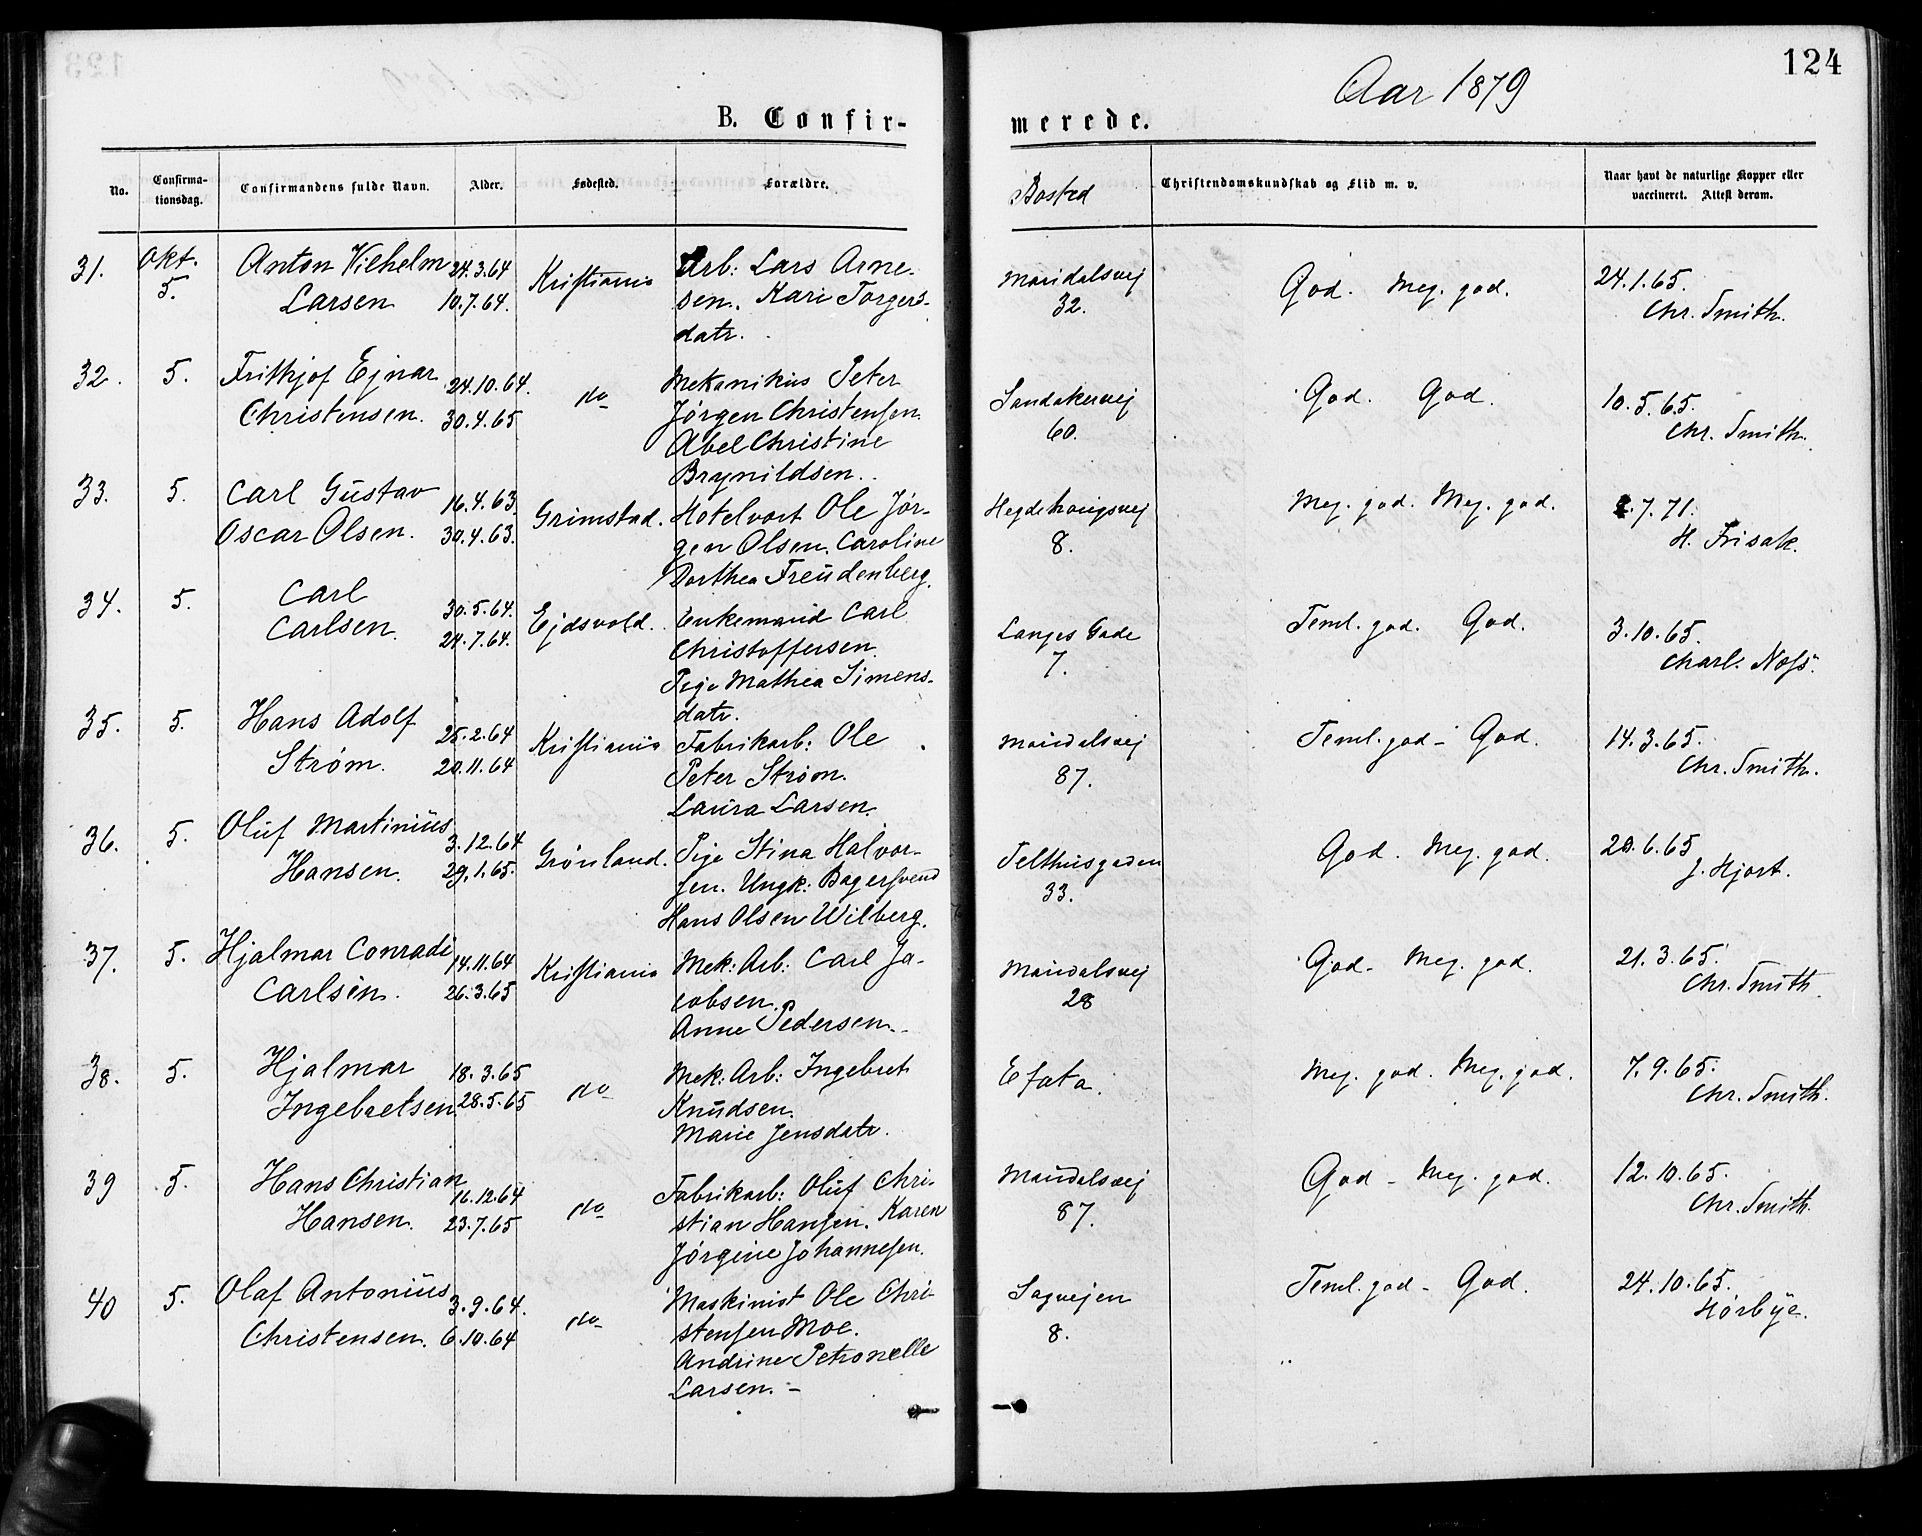 124
Aar 1879
B. Confir-
merede.
No.
Confirma-
tionsdag.
Confirmandens fulde Navn.
Alder.
Fødested.
Forældre.
Bosted
Christendomskundskab og Flid m. v.
Naar havt de naturlige Kopper eller
vaccineret. Attest derom.
31. Okt. 5. Anton Vilhelm Larsen 24.3.64 10.7.64. Kristiania Arb: Lars Arne-
sen. Kari Torgers-
datr.
Maridalsvej 32. God. Meg. god. 24.1.65. Chr. Smith.
32. 5. Frithjof Ejnar Christensen. 24.10.64. 30.4.65 do Mekanikus Peter
Jørgen Christensen.
Abel Christine
Brynildsen.
Sandakervej 60. God. God. 10.5.65. Chr. Smith.
33. 5. Carl Gustav Oscar Olsen. 16.4.63. 30.4.63. Grimstad. Hotelvært Ole Jør-
gen Olsen. Caroline
Dorthea Freudenberg.
Hegdehaugsvej 8. Meg. god. Meg. god. .7.71. H. Frisak.
34. 5. Carl Carlsen. 30.5.64. 24.7.64. Ejdsvold. Enkemand Carl
Christoffersen.
Pige Mathea Simens-
datr.
Langes Gade 7. Teml. god. God. 3.10.65. Charl. Noss.
35. 5. Hans Adolf Strøm. 25.2.64 20.11.64 Kristiania Fabrikarb: Ole
Peter Strøm.
Laura Larsen.
Maridalsvej 87. Teml. god - God. 14.3.65. Chr. Smith.
36. 5. Oluf Martinius Hansen. 3.12.64 29.1.65. Grønland. Pige Stina Halvor-
sen. Ungk: Bagersvend
Hans Olsen Wilberg.
Telthusgaden 33. God. Meg. god. 20.6.65 J. Hjort.
37. 5. Hjalmar Conradi Carlsen. 14.11.64 26.3.65 Kristiania Mek: Arb: Carl Ja-
cobsen.
Anne Pedersen.
Maridalsvej 28 God - Meg. god. 21.3.65. Chr. Smith.
38. 5. Hjalmar Ingebretsen 18.3.65 28.5.65 do Mek: Arb: Ingebret
Knudsen.
Marie Jensdatr.
Efata. Meg. god. Meg. god. 7.9.65. Chr. Smith.
39 5. Hans Christian Hansen. 16.12.64 23.7.65 do Fabrikarb: Oluf Chri-
stian Hansen. Karen
Jørgine Johannesen.
Maridalsvej 87. God - Meg. god. 12.10.65. Chr. Smith.
40 5. Olaf Antonius Christensen. 3.9.64. 6.10.64 do Maskinist Ole Chri-
stensen Moe.
Andrine Petronelle
Larsen. -
Sagvejen 8. Teml. god - God. 24.10.65. Hørbye.